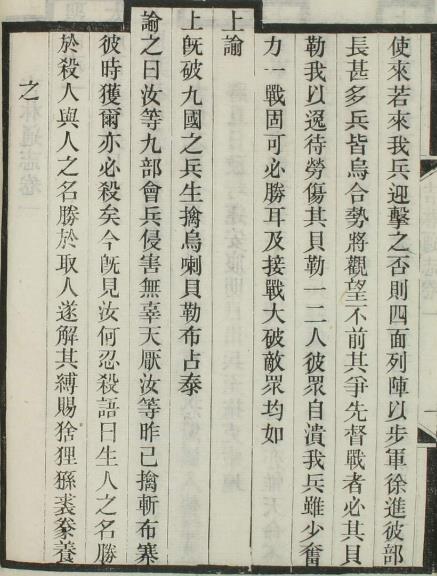 使來若來我兵迎擊之否則四面列陣以步軍徐進彼部
長甚多兵皆烏合勢將觀望不前其爭先督戰者必其貝
勒我以逸待勞傷其貝勒一二人彼眾自潰我兵雖少奮
力一戰固可必勝耳及接戰大破敵眾均如
上諭
上旣破九國之兵生擒烏喇貝勒布占泰
諭之曰汝等九部會兵侵害無辜天厭汝等昨已擒斬布寨
彼時獲爾亦必殺矣今旣見汝何忍殺語曰生人之名勝
於殺人與人之名勝於取人遂解其縛賜猞狸猻裘豢養
之